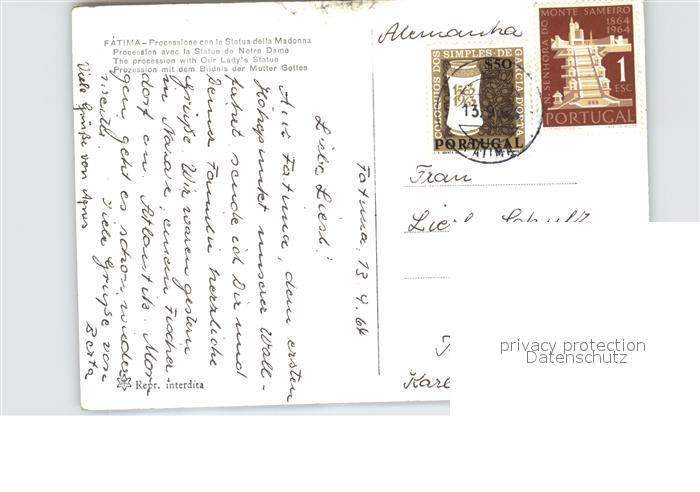 FÁTIMA – Processione con la Statua della Madonna
Procession avec la Statue de Notre Dame
The procession with Our Lady's Statue
Prozession mit dem Bildnis der Mutter Gottes
Alemanha
COLOQUIOS DOS SIMPLES · DE GARCIA D'ORTA
$50
1563
1963
PORTUGAL
13.
SENHORA DO MONTE SAMEIRO
1864
1964
1
ESC
PORTUGAL
Fatima, 13. 9. 64
Liebe Liesl!
Aus Fatima, dem ersten
Höhepunkt unserer Wall-
fahrt sende ich Dir und
Deiner Familie herzliche
Grüße. Wir waren gestern
in Nazare, einem Fischer
dorf am Atlantik. Mor
gen geht es schon wieder
Viele Grüße von
Berta
Viele Grüße von Agnes
Frau
Liesl
Repr. interdita
privacy protection
Datenschutz